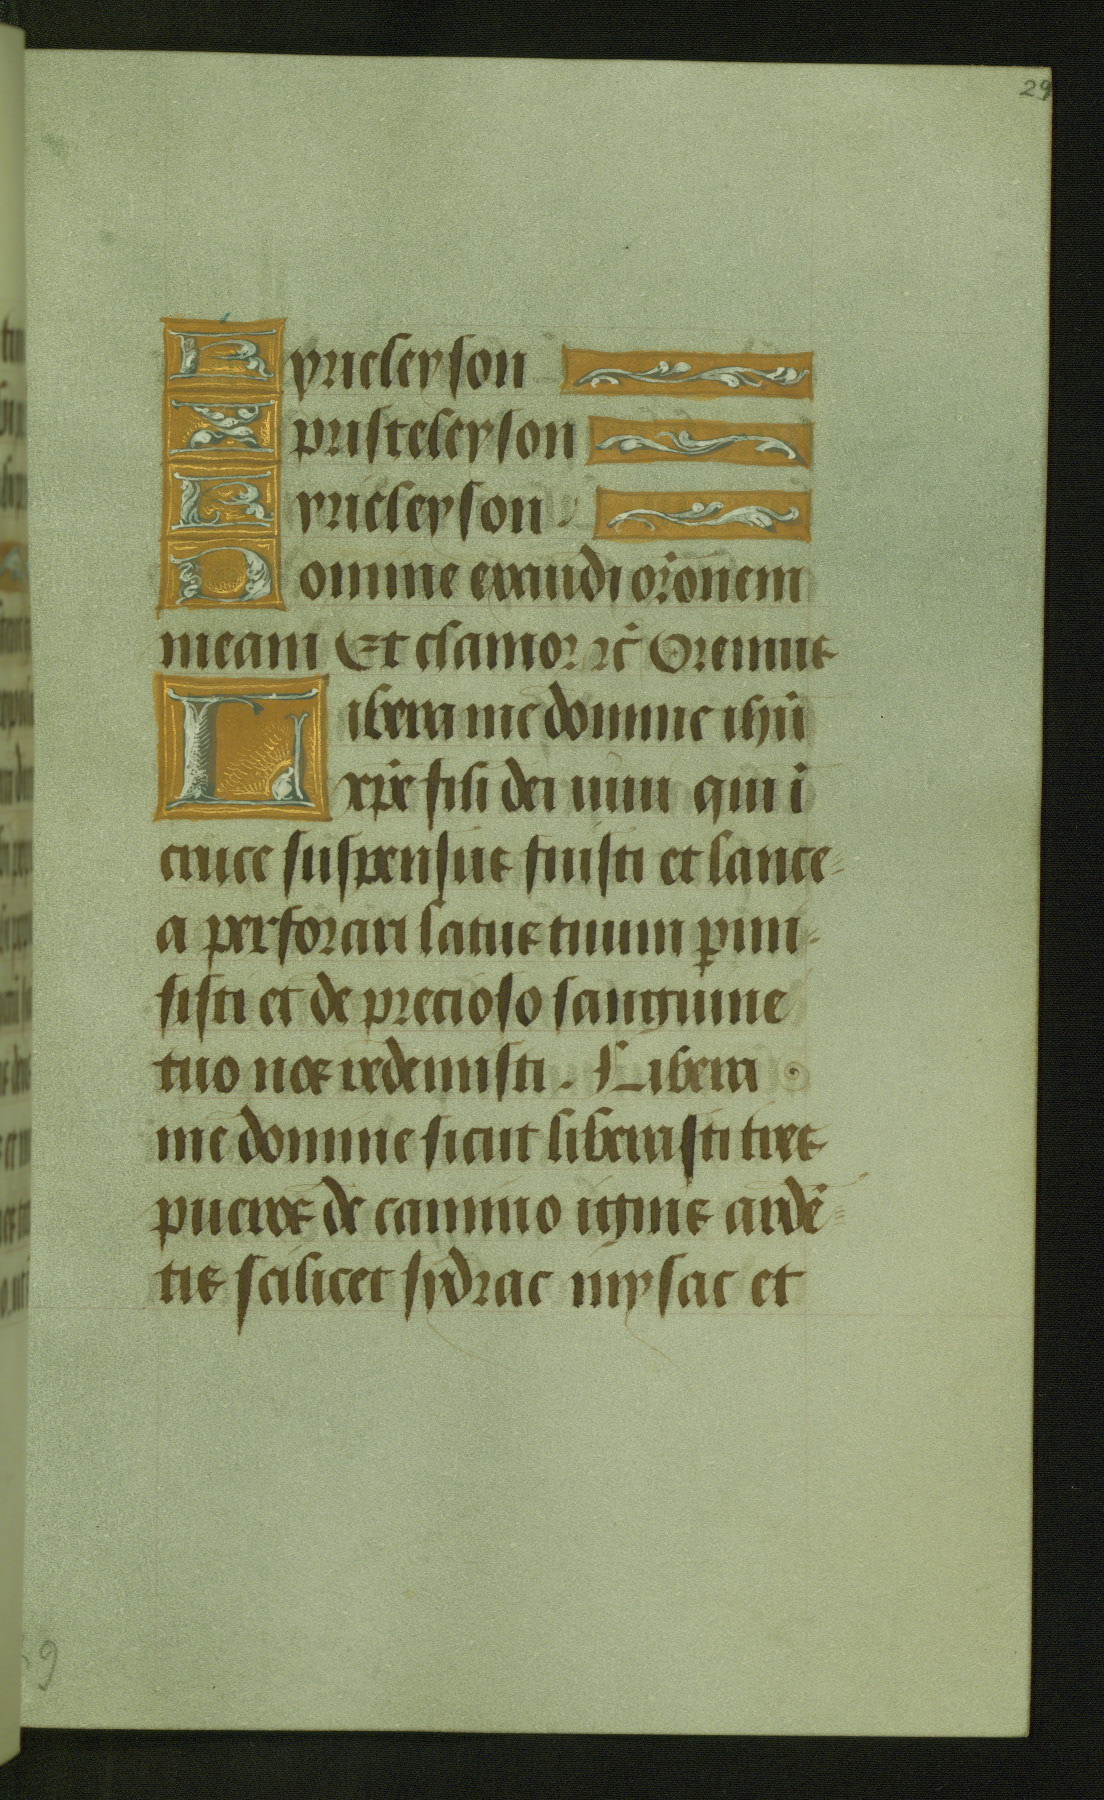 29
Kyrieleyson
Xpristeleyson
Kyrieleyson
Domine exaudi or̃onem
meam Et clamor ⁊c̃ Oremus
Libera me domine ihũ
xp̃e fili dei uiui qui ĩ
cruce suspensus fuisti et lance-
a perforari latus tuum ꝑmi-
sisti et de precioso sanguine
tuo nos redemisti. Libera
me domine sicut liberasti tres
pueros de camino ignis ardẽ-
tis scilicet sydrac mysac et